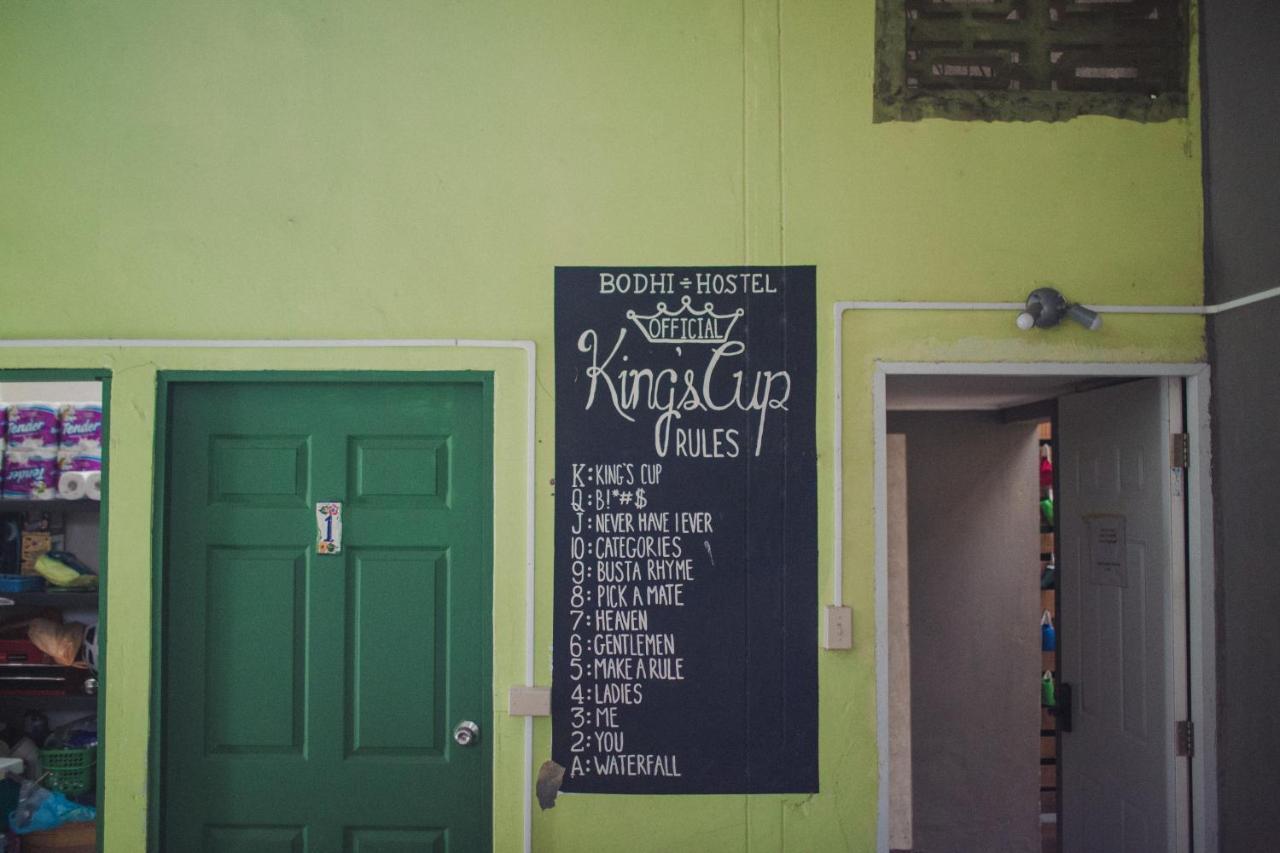 BODHI ÷ HOSTEL
OFFICIAL
King's Cup
RULES
K: KING'S CUP
Q: B!*#$
J: NEVER HAVE I EVER
10: CATEGORIES
9: BUSTA RHYME
8: PICK A MATE
7: HEAVEN
6: GENTLEMEN
5: MAKE A RULE
4: LADIES
3: ME
2: YOU
A: WATERFALL
1
Tender
Tender
Tender